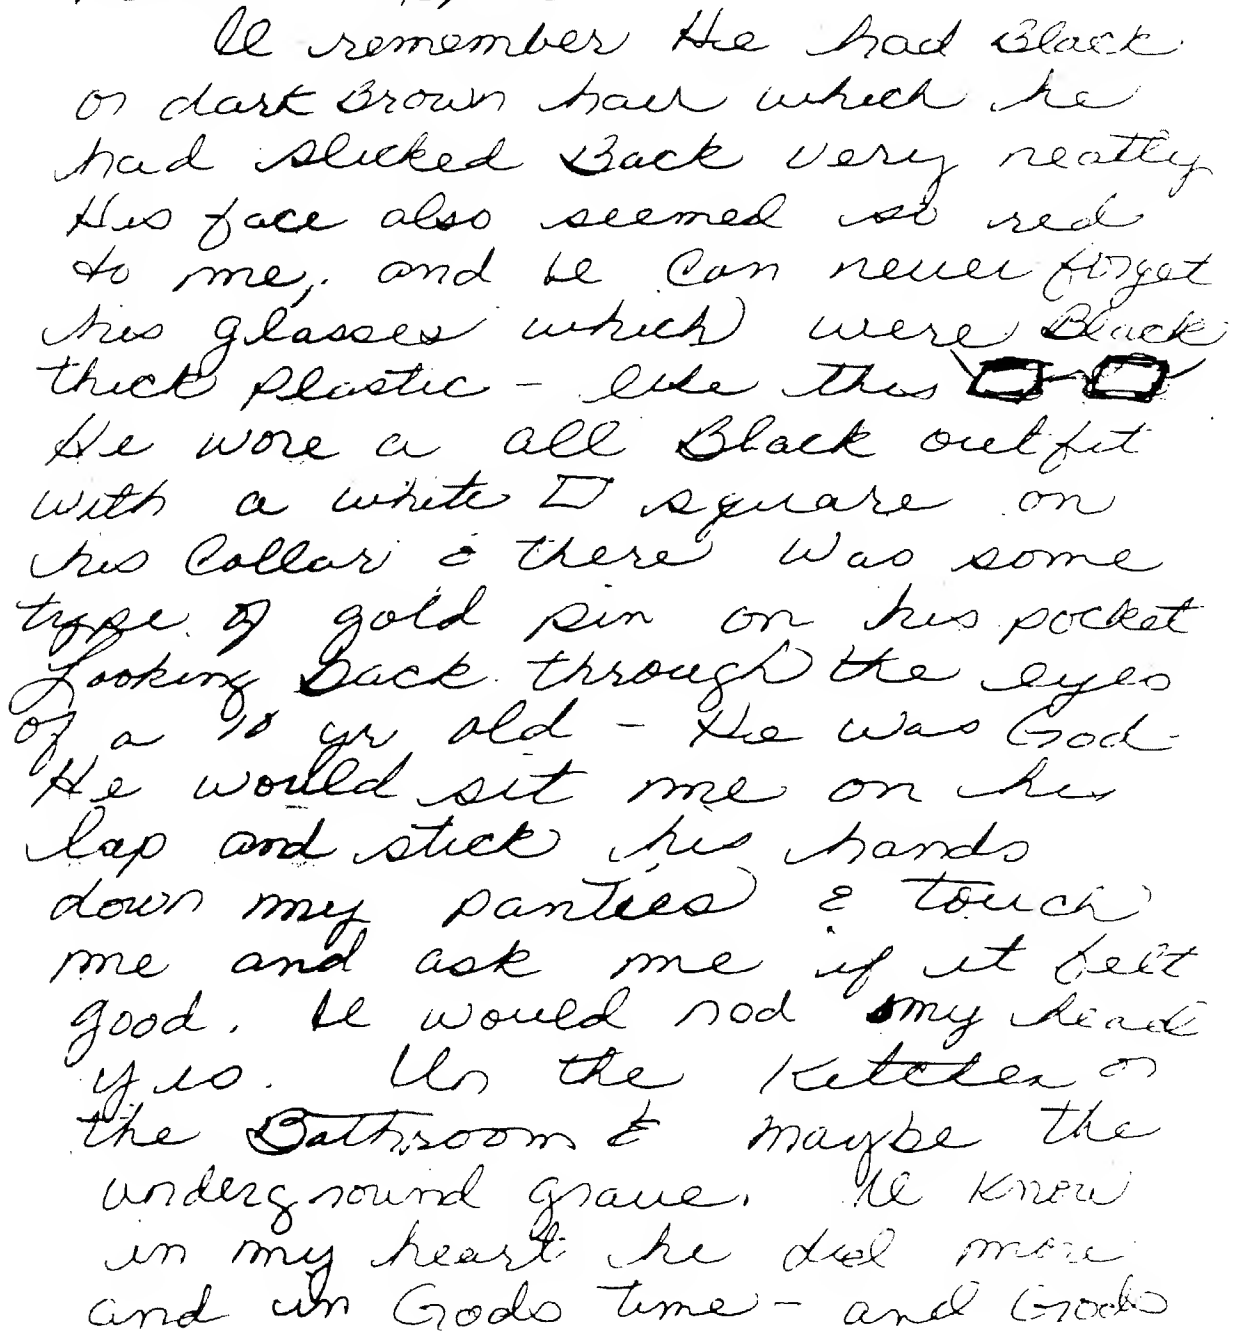 I remember He had Black
or dark Brown hair which he
had slicked Back very neatly
His face also seemed so red
to me, and I can never forget
his glasses which were Black
thick plastic - like this
He wore a all Black outfit
with a white square on
his Collar & there was some
type of gold pin on his pocket
Looking Back through the eyes
of a 10 yr old - He was God
He would sit me on his
lap and stick his hands
down my panties & touch
me and ask me if it felt
good. I would nod my head
yes. In the Kitchen or
the Bathroom & maybe the
underground grave. I know
in my heart he did more
and in Gods time - and Gods